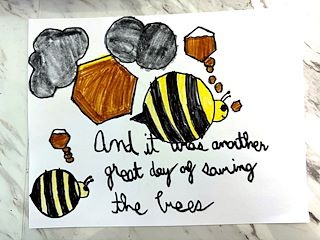 And it was another
great day of saving
the bees